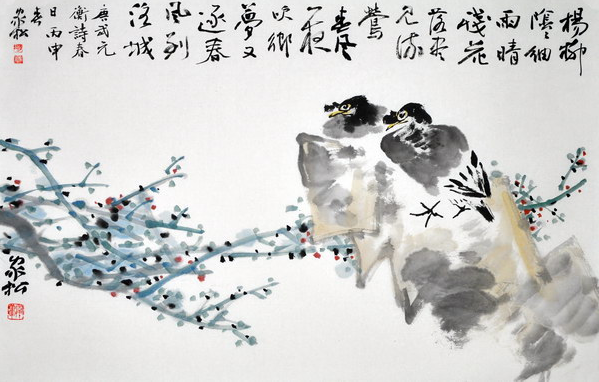 楊柳
陰〻細
雨晴
殘花
落盡
見流
鶯
春風
一夜
吹鄉
夢又
逐春
風到
洛城
唐武元
衡詩春
日丙申
春
家松
家松